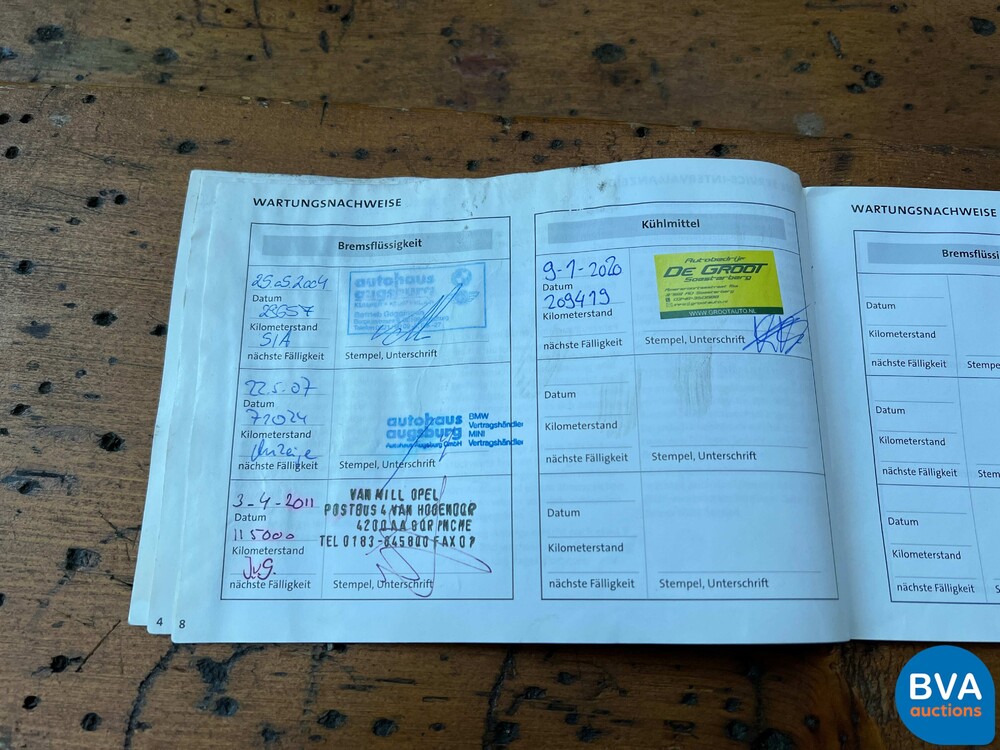 WARTUNGSNACHWEISE
Bremsflüssigkeit
25.05.2004
Datum
autohaus
augsburg
Kilometerstand
SIA
nächste Fälligkeit
Stempel, Unterschrift
22.5.07
Datum
71024
Kilometerstand
Anzeige
nächste Fälligkeit
autohaus
augsburg
Autohaus Augsburg GmbH
BMW
Vertragshändler
MINI
Vertragshändler
Stempel, Unterschrift
3-4-2011
Datum
115000
Kilometerstand
JvG.
nächste Fälligkeit
VAN MILL OPEL
POSTBUS 4 VAN HOGENDOR
4200AA GORINCHE
TEL 0183-645800 FAX 0
Stempel, Unterschrift
Kühlmittel
9-1-2020
Datum
209419
Kilometerstand
nächste Fälligkeit
Autobedrijf
DE GROOT
Soesterberg
WWW.GROOTAUTO.NL
Stempel, Unterschrift
Datum
Kilometerstand
nächste Fälligkeit
Stempel, Unterschrift
Datum
Kilometerstand
nächste Fälligkeit
Stempel, Unterschrift
4 8
WARTUNGSNACHWEISE
Bremsflüssi
Datum
Kilometerstand
nächste Fälligkeit
Stempe
Datum
Kilometerstand
nächste Fälligkeit
Stem
Datum
Kilometerstand
nächste Fälligkeit
S
BVA
auctions